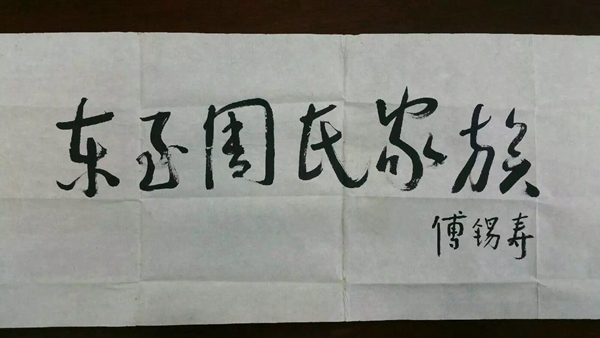 东至周氏家族
傅锡寿